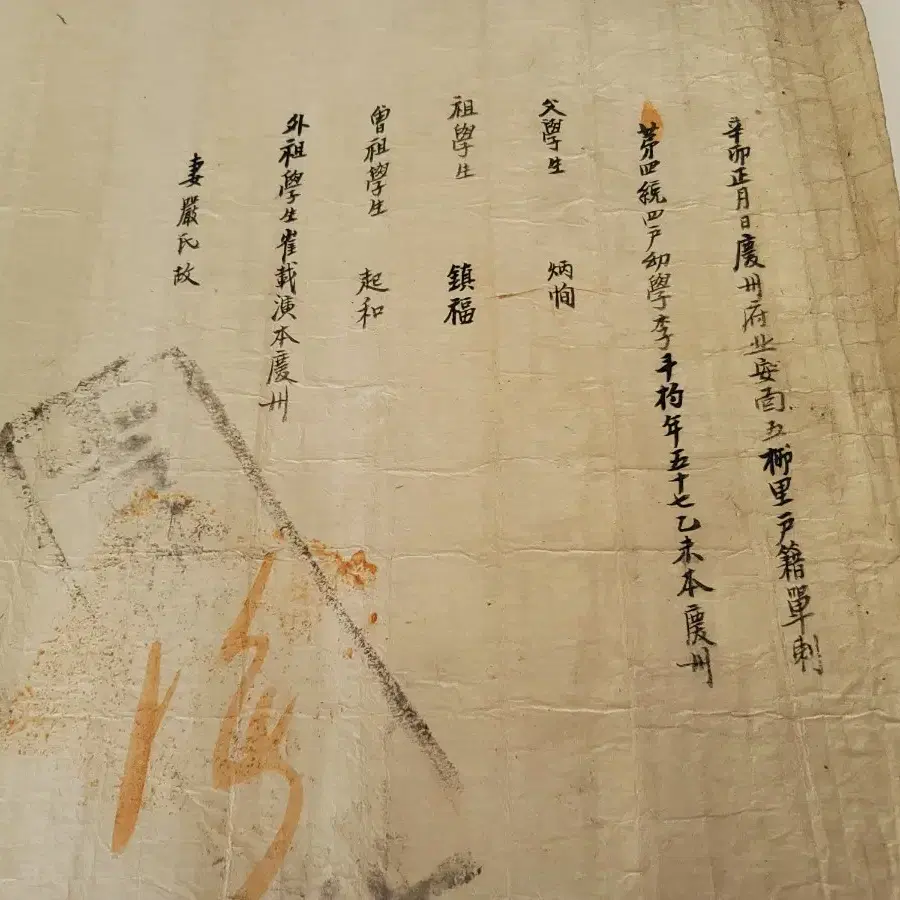 辛卯正月日慶州府北安面五柳里戶籍單刺
苐四統四戶幼學李斗杓年五十七乙未本慶州
父學生 炳恂
祖學生 鎮福
曾祖學生 起和
外祖學生崔載演本慶州
妻嚴氏故